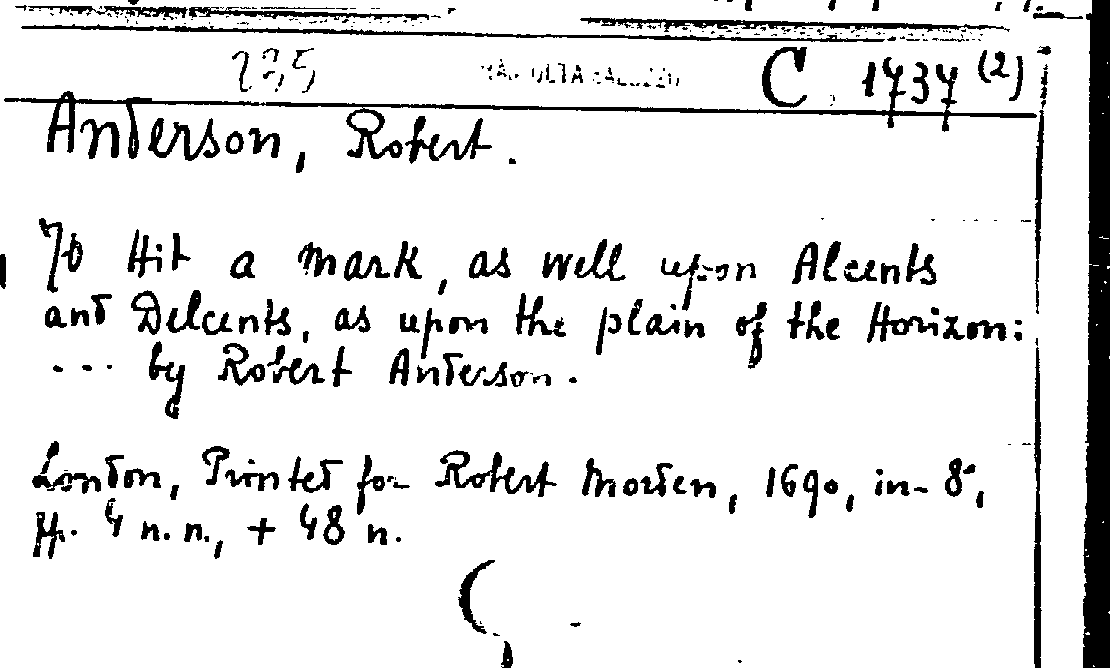 235 RACCOLTA SALUZZO C 1737 (2)
Anderson, Robert.
To Hit a Mark, as well upon Alcents
and Delcents, as upon the plain of the Horizon:
... by Robert Anderson.
London, Printed for Robert Morden, 1690, in-8°,
pp. 4 n.n., + 48 n.